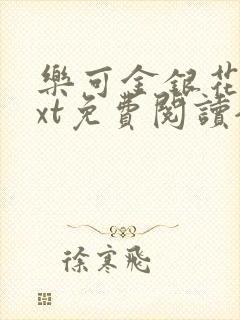 樂可金銀花
xt免費閱讀
徐寒飛